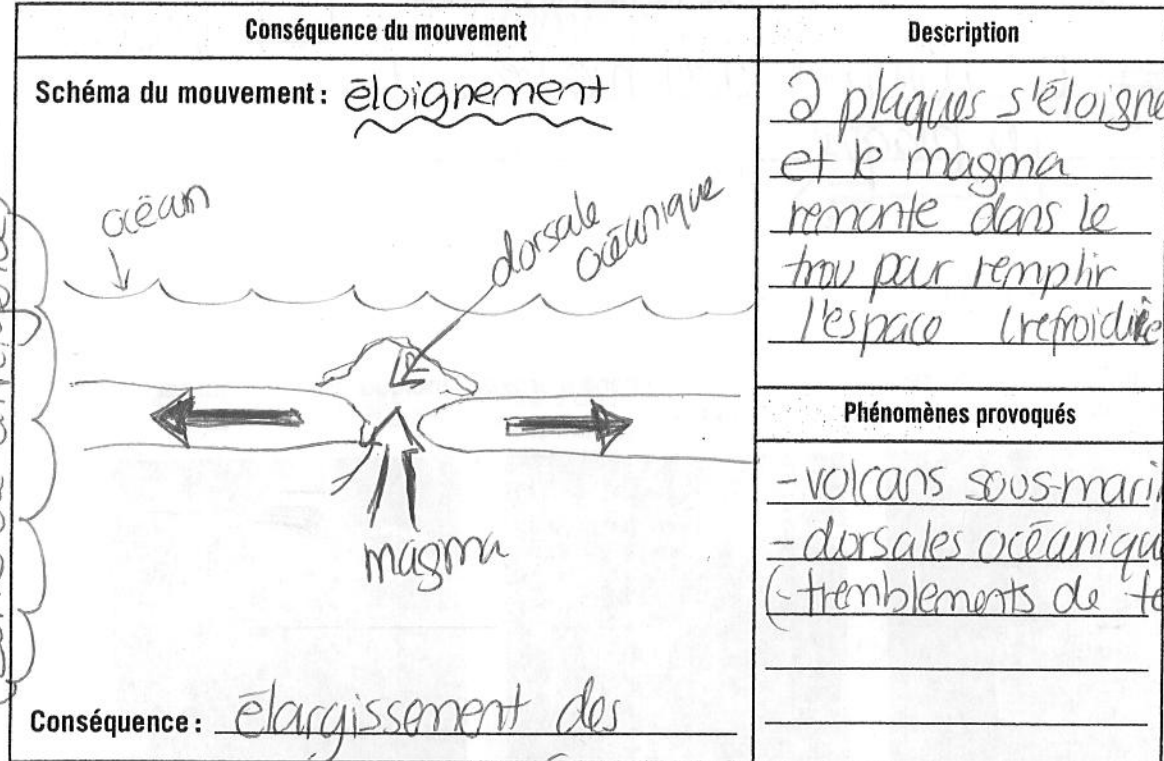 Conséquence du mouvement
Schéma du mouvement : éloignement
océan
dorsale
océanique
magma
Conséquence : élargissement des
Description
2 plaques s'éloigne
et le magma
remonte dans le
trou pour remplir
l'espace (refroidir
Phénomènes provoqués
- volcans sous-mari
- dorsales océaniqu
(- tremblements de te